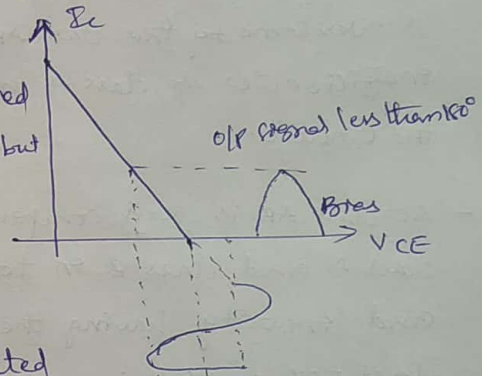 Ic
ed
but
O/P signal less than 180°
Bias
VCE
ted